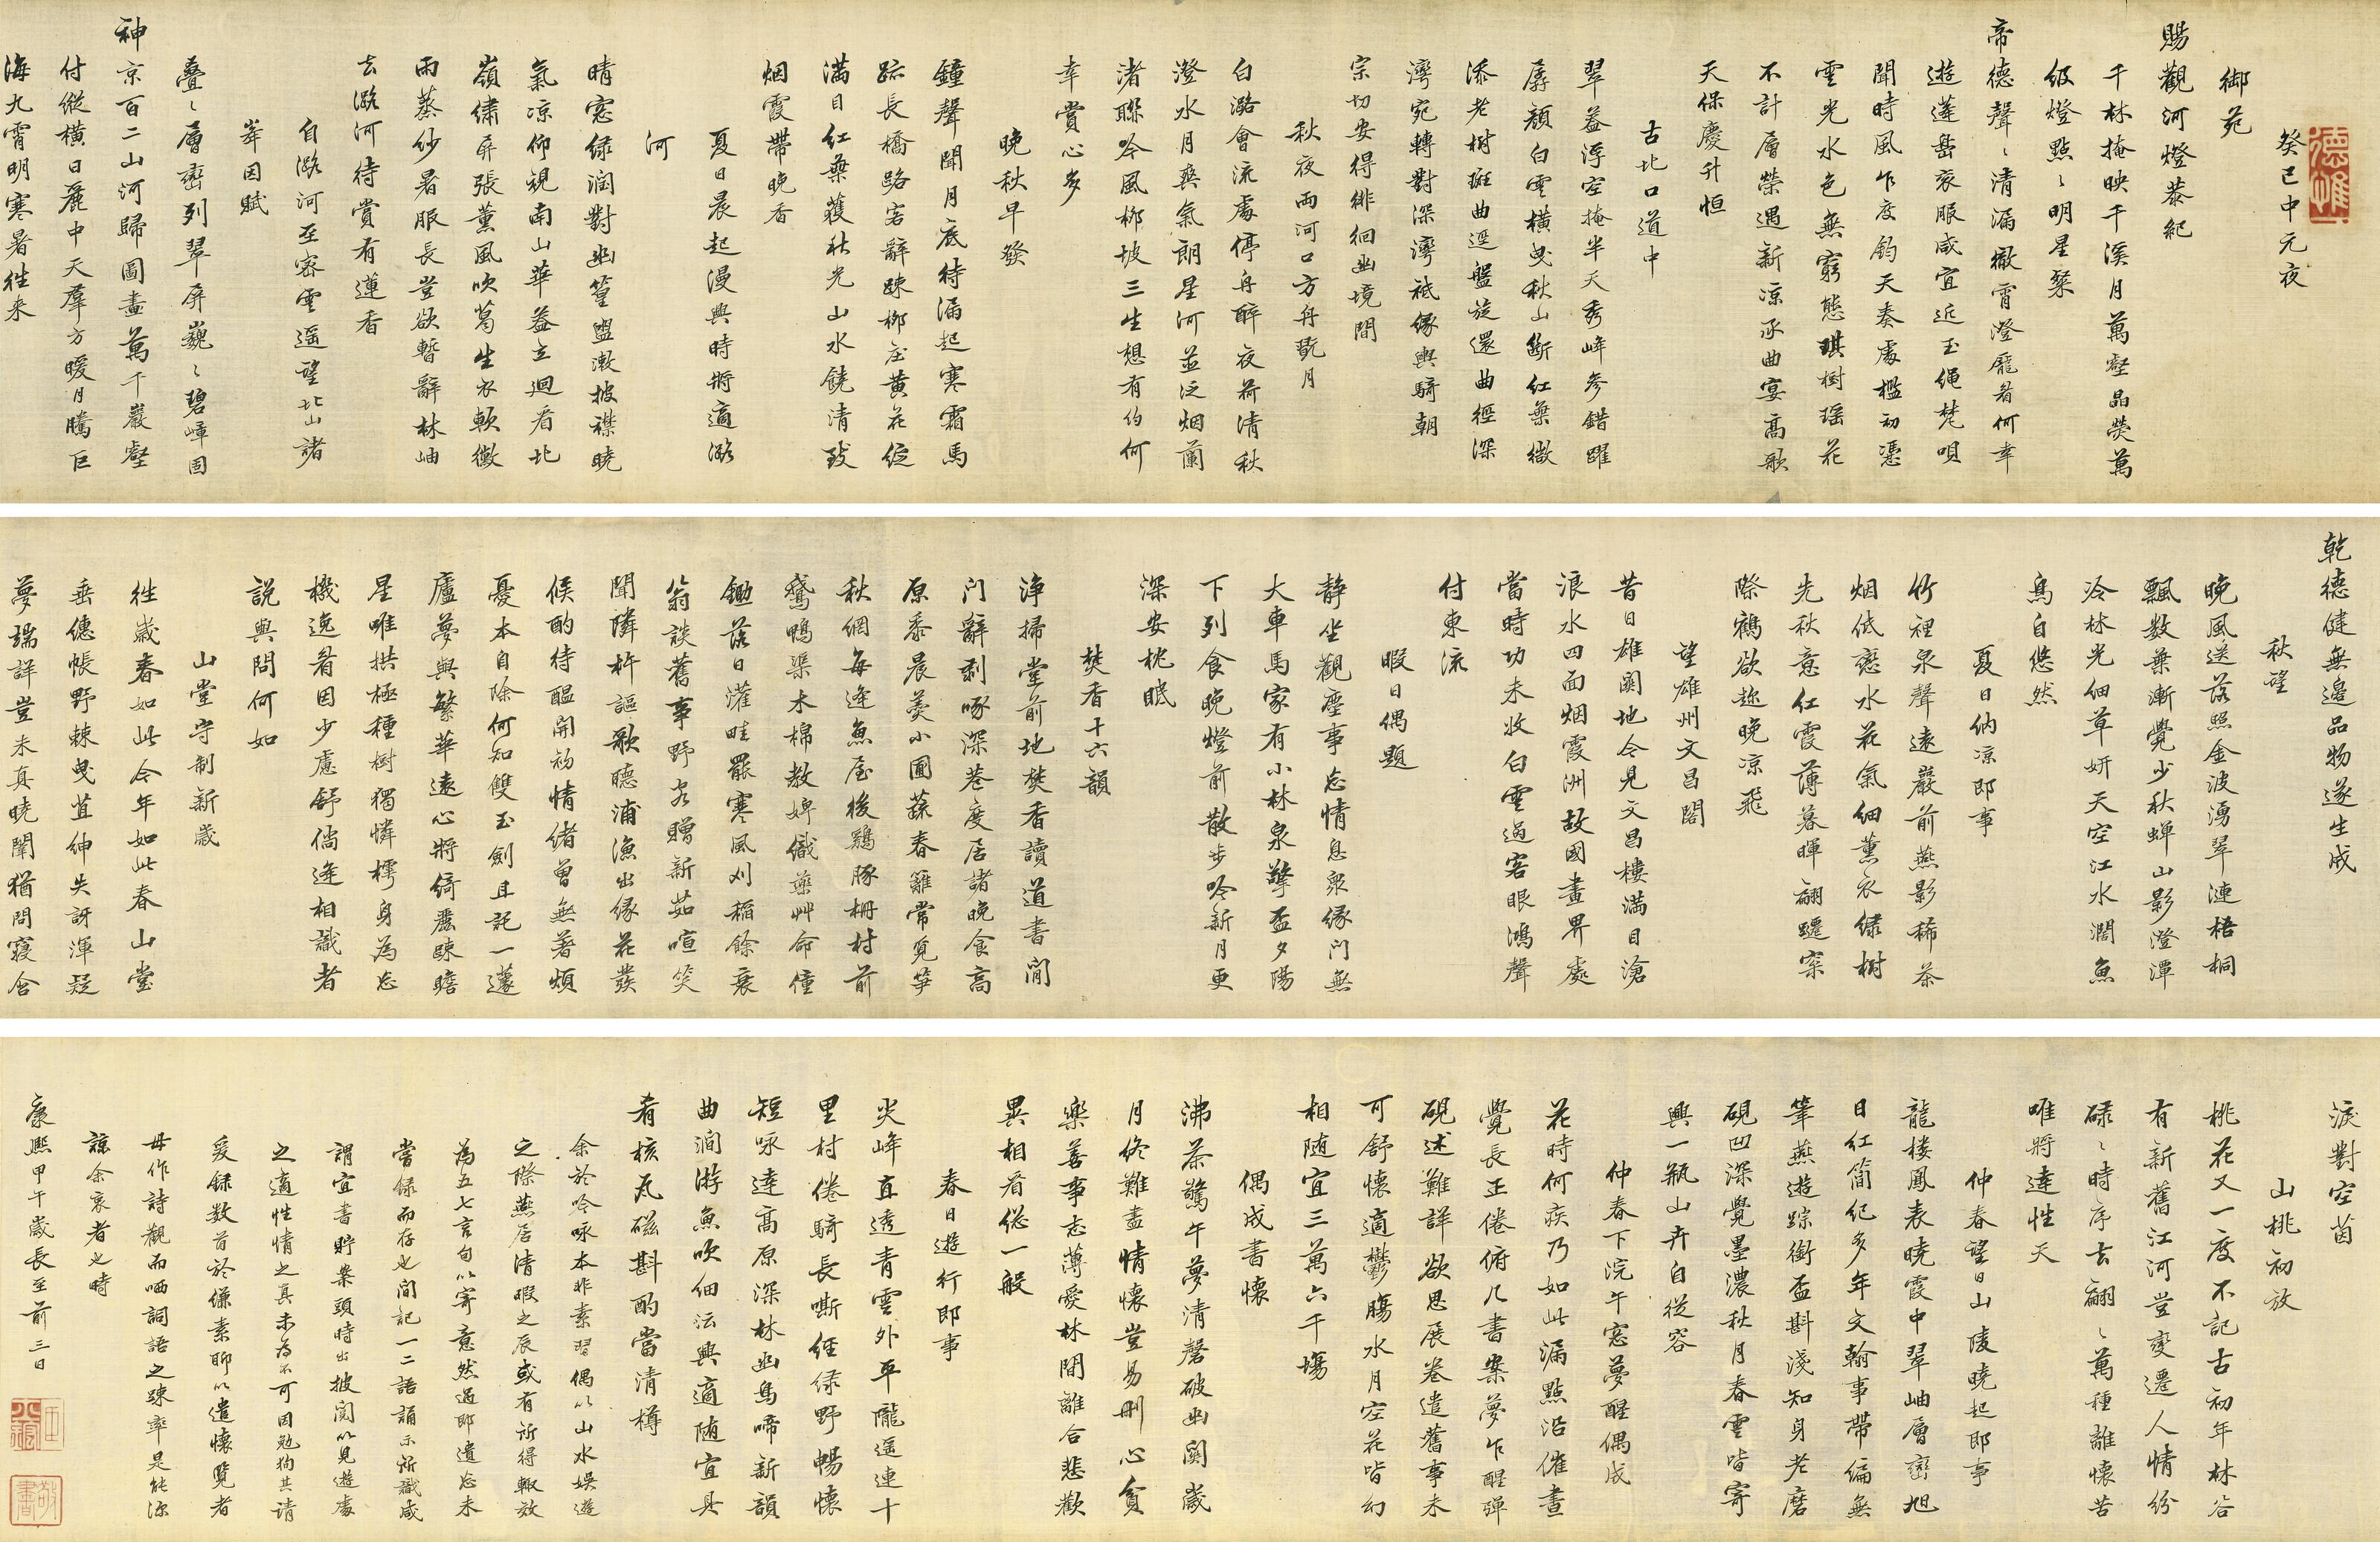 癸巳中元夜
御苑
賜觀河燈恭紀
千林掩映千溪月萬壑晶熒萬
級燈點〻明星聚
帝德聲〻清漏徹霄澄龐眉何幸
遊蓬島衰服咸宜近玉繩梵唄
聞時風乍度鈞天奏處檻初憑
雲光水色無窮態琪樹瑤花
不計層榮遇新涼承曲宴高歌
天保慶升恒
古北口道中
翠蓋浮空掩半天秀峰參錯躍
孱顏白雲橫曳秋山斷紅葉微
添老樹斑曲逕盤旋還曲徑深
灣宛轉對深灣祗緣輿騎朝
宗切安得徘徊幽境間
秋夜兩河口方舟翫月
白潞會流處停舟醉夜荷清秋
澄水月爽氣朗星河並泛烟蘭
渚聯吟風柳坡三生想有約何
幸賞心多
晚秋早發
鐘聲聞月底待漏起寒霜馬
跡長橋路客辭疎柳庄黃花促
滿目紅葉蘐秋光山水饒清致
烟霞帶晚香
夏日晨起漫興時將適潞
河
晴窓綠潤對幽篁盥漱披襟曉
氣涼仰視南山華蓋立迴看北
嶺繡屏張薰風吹葛生衣軟微
雨蒸紗暑服長豈欲暫辭林岫
去潞河待賞有蓮香
自潞河至密雲遥望北山諸
峯因賦
疊〻層巒列翠屏巍〻碧嶂固
神京百二山河歸圖畫萬千巖壑
付縱橫日麗中天羣方暖月騰巨
海九霄明寒暑往来
乾德健無邊品物遂生成
秋望
晚風送落照金波湧翠漣梧桐
飄数葉漸覺少秋蟬山影澄潭
冷林光细草妍天空江水濶魚
鳥自悠然
夏日納涼即事
竹裡泉聲遠巖前燕影稀茶
烟低戀水花氣细薰衣綠樹
先秋意紅霞薄暮暉翩躚寀
際鶴欲趂晚凉飛
望雄州文昌閣
昔日雄關地今見文昌樓滿目滄
浪水四面烟霞洲故國畫界處
當時功未收白雲過客眼鴻聲
付東流
暇日偶題
静坐觀塵事忘情息衆緣门無
大車馬家有小林泉擎盃夕陽
下列食晚燈前散步吟新月更
深安枕眠
焚香十六韻
淨掃堂前地焚香讀道書閒
门辭剥啄深巷度居諸晚食高
原黍晨羹小圃蔬春籬常覓笋
秋網每逢魚屋後鷄豚柵村前
鵞鴨渠木棉教婢織藥艸命僮
鋤落日灌畦罷寒風刈稻餘衰
翁談舊事野客贈新茹喧笑
聞隣杵謳歌聽浦漁出緣花發
候酌待醞開初情绪曾無著煩
憂本自除何知雙玉劍且託一蘧
廬夢與繁華遠心將綺麗疎瞻
星唯拱極種樹獨憐樗身為忘
機逸眉因少慮舒倘逢相識者
説與問何如
山堂守制新歲
往歲春如此今年如此春山堂
垂德帳野棘曳苴紳失訝渾疑
夢端詳豈未真曉闈猶問寢含
淚對空茵
山桃初放
桃花又一度不記古初年林谷
有新舊江河豈變遷人情紛
碌〻時序去翩〻萬種離懷苦
唯將達性天
仲春望日山陵曉起即事
龍楼鳳表曉霞中翠岫層巒旭
日紅简紀多年文翰事帶编無
筆燕遊踪銜盃斟淺知身老磨
硯凹深覺墨濃秋月春雲皆寄
興一瓶山卉自從容
仲春下浣午窓夢醒偶成
花時何疾乃如此漏點沿催晝
覺長正倦俯几書案夢乍醒彈
硯述難詳欲思展卷遣舊事未
可舒懷適鬱膓水月空花皆幻
相随宜三萬六千塲
偶成書懷
沸茶驚午夢清磬破幽関歲
月修難盡情懷豈易刪心貪
樂善事志薄愛林間離合悲歡
異相看縂一般
春日遊行即事
尖峰直透青雲外平隴遥連十
里村倦騎長嘶經绿野暢懷
短咏達高原深林幽鳥啼新韻
曲澗游魚吹细沄興適随宜具
肴核瓦磁斟酌當清樽
余於吟咏本非素習偶以山水娱遊
之際燕居清暇之辰或有所得輒效
為五七言句以寄意然過即遺忘未
當録而存也間記一二語誦示所識咸
謂宜書貯案頭時出披閲以見遊處
之適性情之真未為不可因勉狥其請
爰録数首於縑素聊以遣懷覽者
毋作詩觀而哂詞語之疎率是能深
諒余衷者也時
康熙甲午歲長至前三日